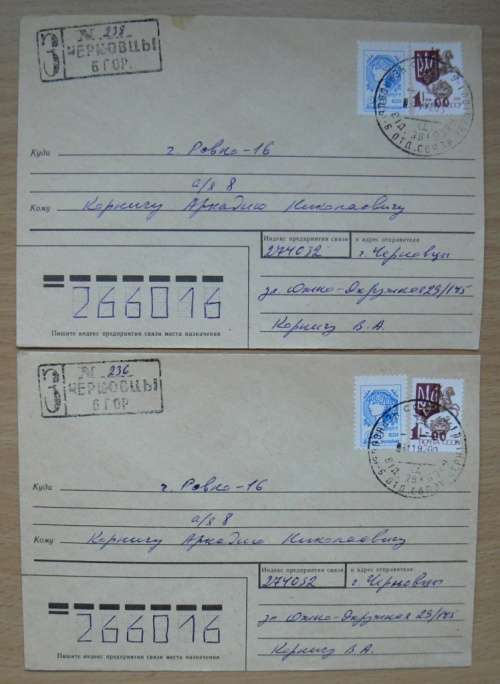 З № 238
ЧЕРНОВЦЫ
6 ГОР.
1-00
Куда г. Ровно-16
а/я 8
Кому Корничу Аркадию Николаевичу
Индекс предприятия связи и адрес отправителя
274032 г. Черновцы
ул Южно-Окружная 29/145
Корнич В. А.
266016
Пишите индекс предприятия связи места назначения
З № 236
ЧЕРНОВЦЫ
6 ГОР.
1-00
ПОЧТА СССР
Куда г. Ровно-16
а/я 8
Кому Корничу Аркадию Николаевичу
Индекс предприятия связи и адрес отправителя
274032 г. Черновцы
ул Южно-Окружная 29/145
Корнич В. А.
266016
Пишите индекс предприятия связи места назначения